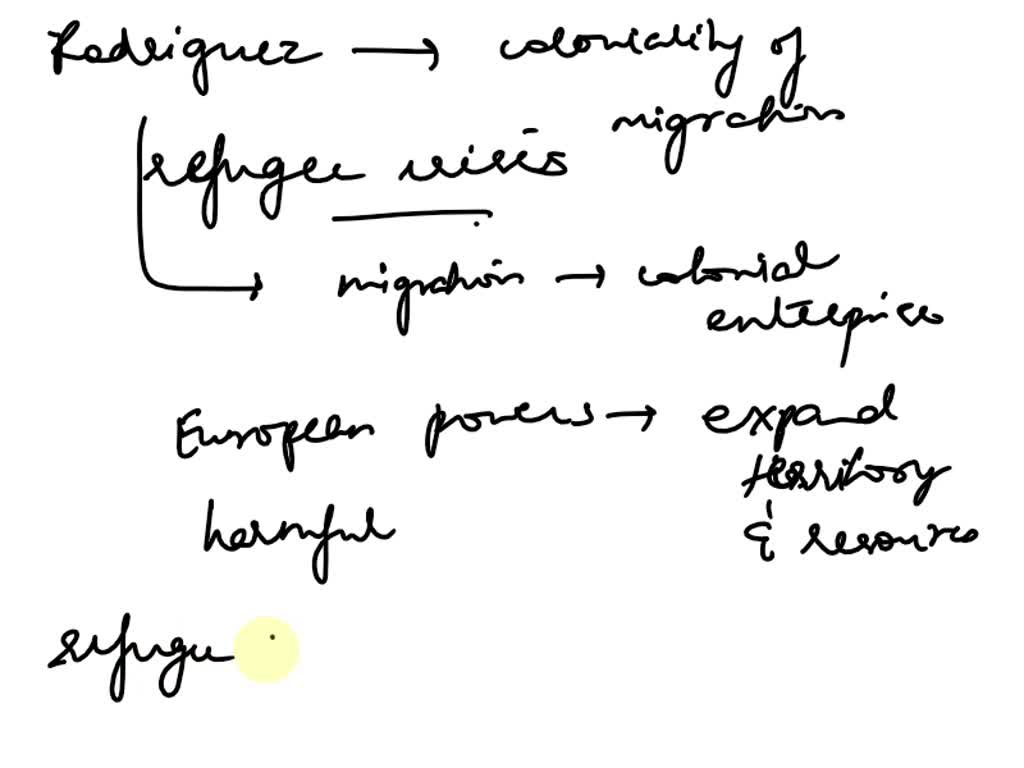 Rodriguez → coloniality of
migration
refugee crisis
migration → colonial
enterprise
European powers → expand
territory
harmful & resources
refugee